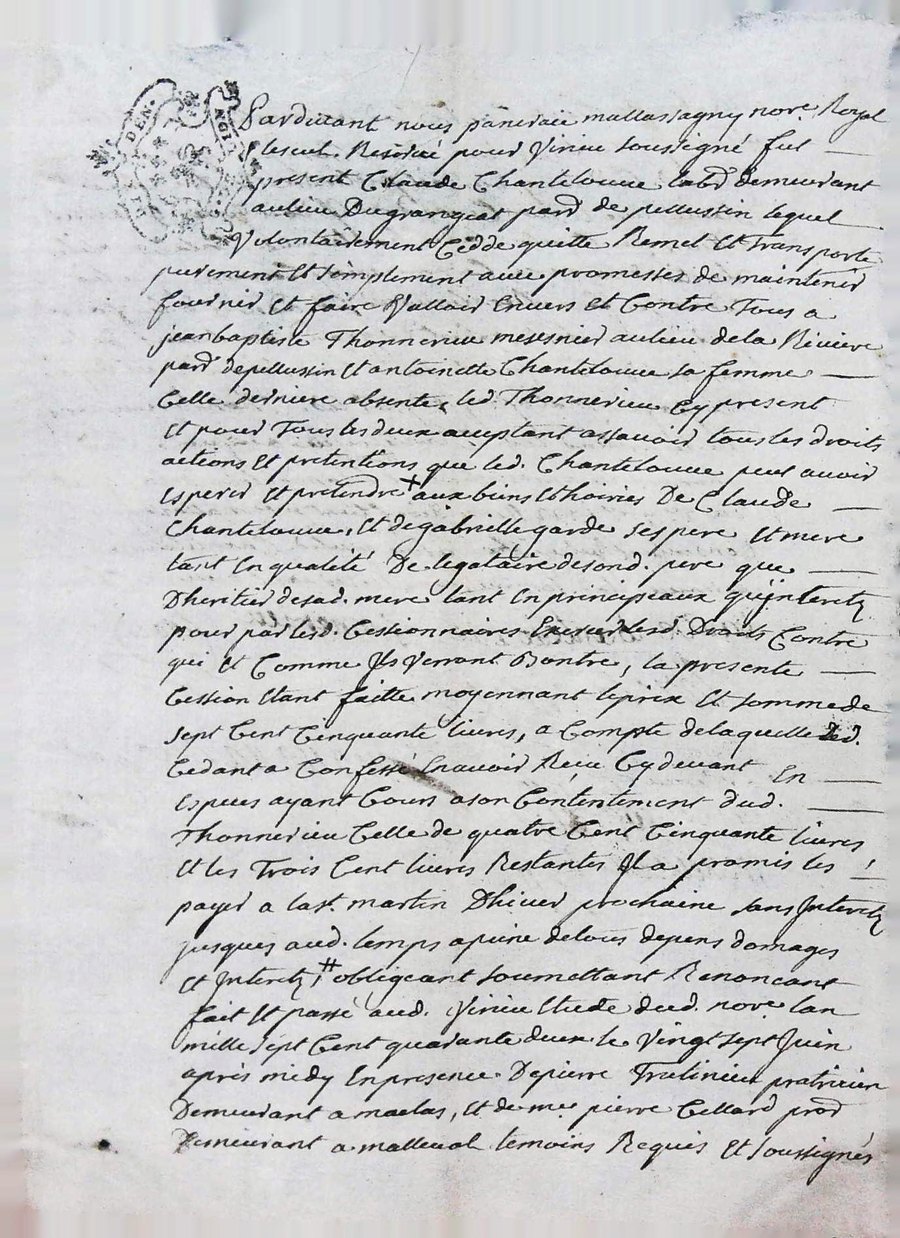 DEN.
Pardevant nous pancrace mallassagny nore. Royal
Reservé pour Virieu soussigné fut
present Claude Chantelouve labr. demeurant
au lieu Dugrangeat parr. de pellussin lequel
Volontairement Cedde quitte Remet Et transporte
purement Et simplement avec promesses de maintenir
fournir Et faire Valloir Envers Et Contre Tous a
jeanbaptiste Thonnerieu au lieu dela Riviere
parr. depellussin Et antoinette Chantelouve sa femme
Celle derniere absente, led. Thonnerieu Cy present
Et pour Tous les deux aceptant assavoir tous les droits
actions Et pretentions que led. Chantelouve peut avoir
Esperer Et pretendre + aux biens Et hoiries De Claude
Chantelouve, Et degabrielle garde ses pere Et mere
tant En qualité De legataire desond. pere que
Dheritier desad. mere tant En principeaux qu'Jnterets
pour par lesd. Cessionnaires Exercer lesd. Droits Contre
qui Et Comme Jls Verront Bontre, la presente
Cession Etant faitte moyennant leprix Et sommede
sept Cent Cinquante livres, a Compte delaquelle led.
Cedant a Confessé En avoir Receu Cydevant En
Especes ayant Cours a son Contentement dud.
Thonnerieu Celle de quatre Cent Cinquante livres
Et les Trois Cent livres Restantes Jl a promis les
payer a la st. martin Dhiver prochaine sans Jnterets
jusques aud. temps a peine detous depens domages
Et Jnterets, # obligeant soumettant Renoncant
fait Et passé aud. Virieu Etude dud. nore. lan
mille sept Cent quarante deux le Vingt sept Juin
apres midy En presence Depierre pratricien
Demeurant a maclas, Et de me pierre Cellard
Demeurant a malleval temoins Requis Et soussignés